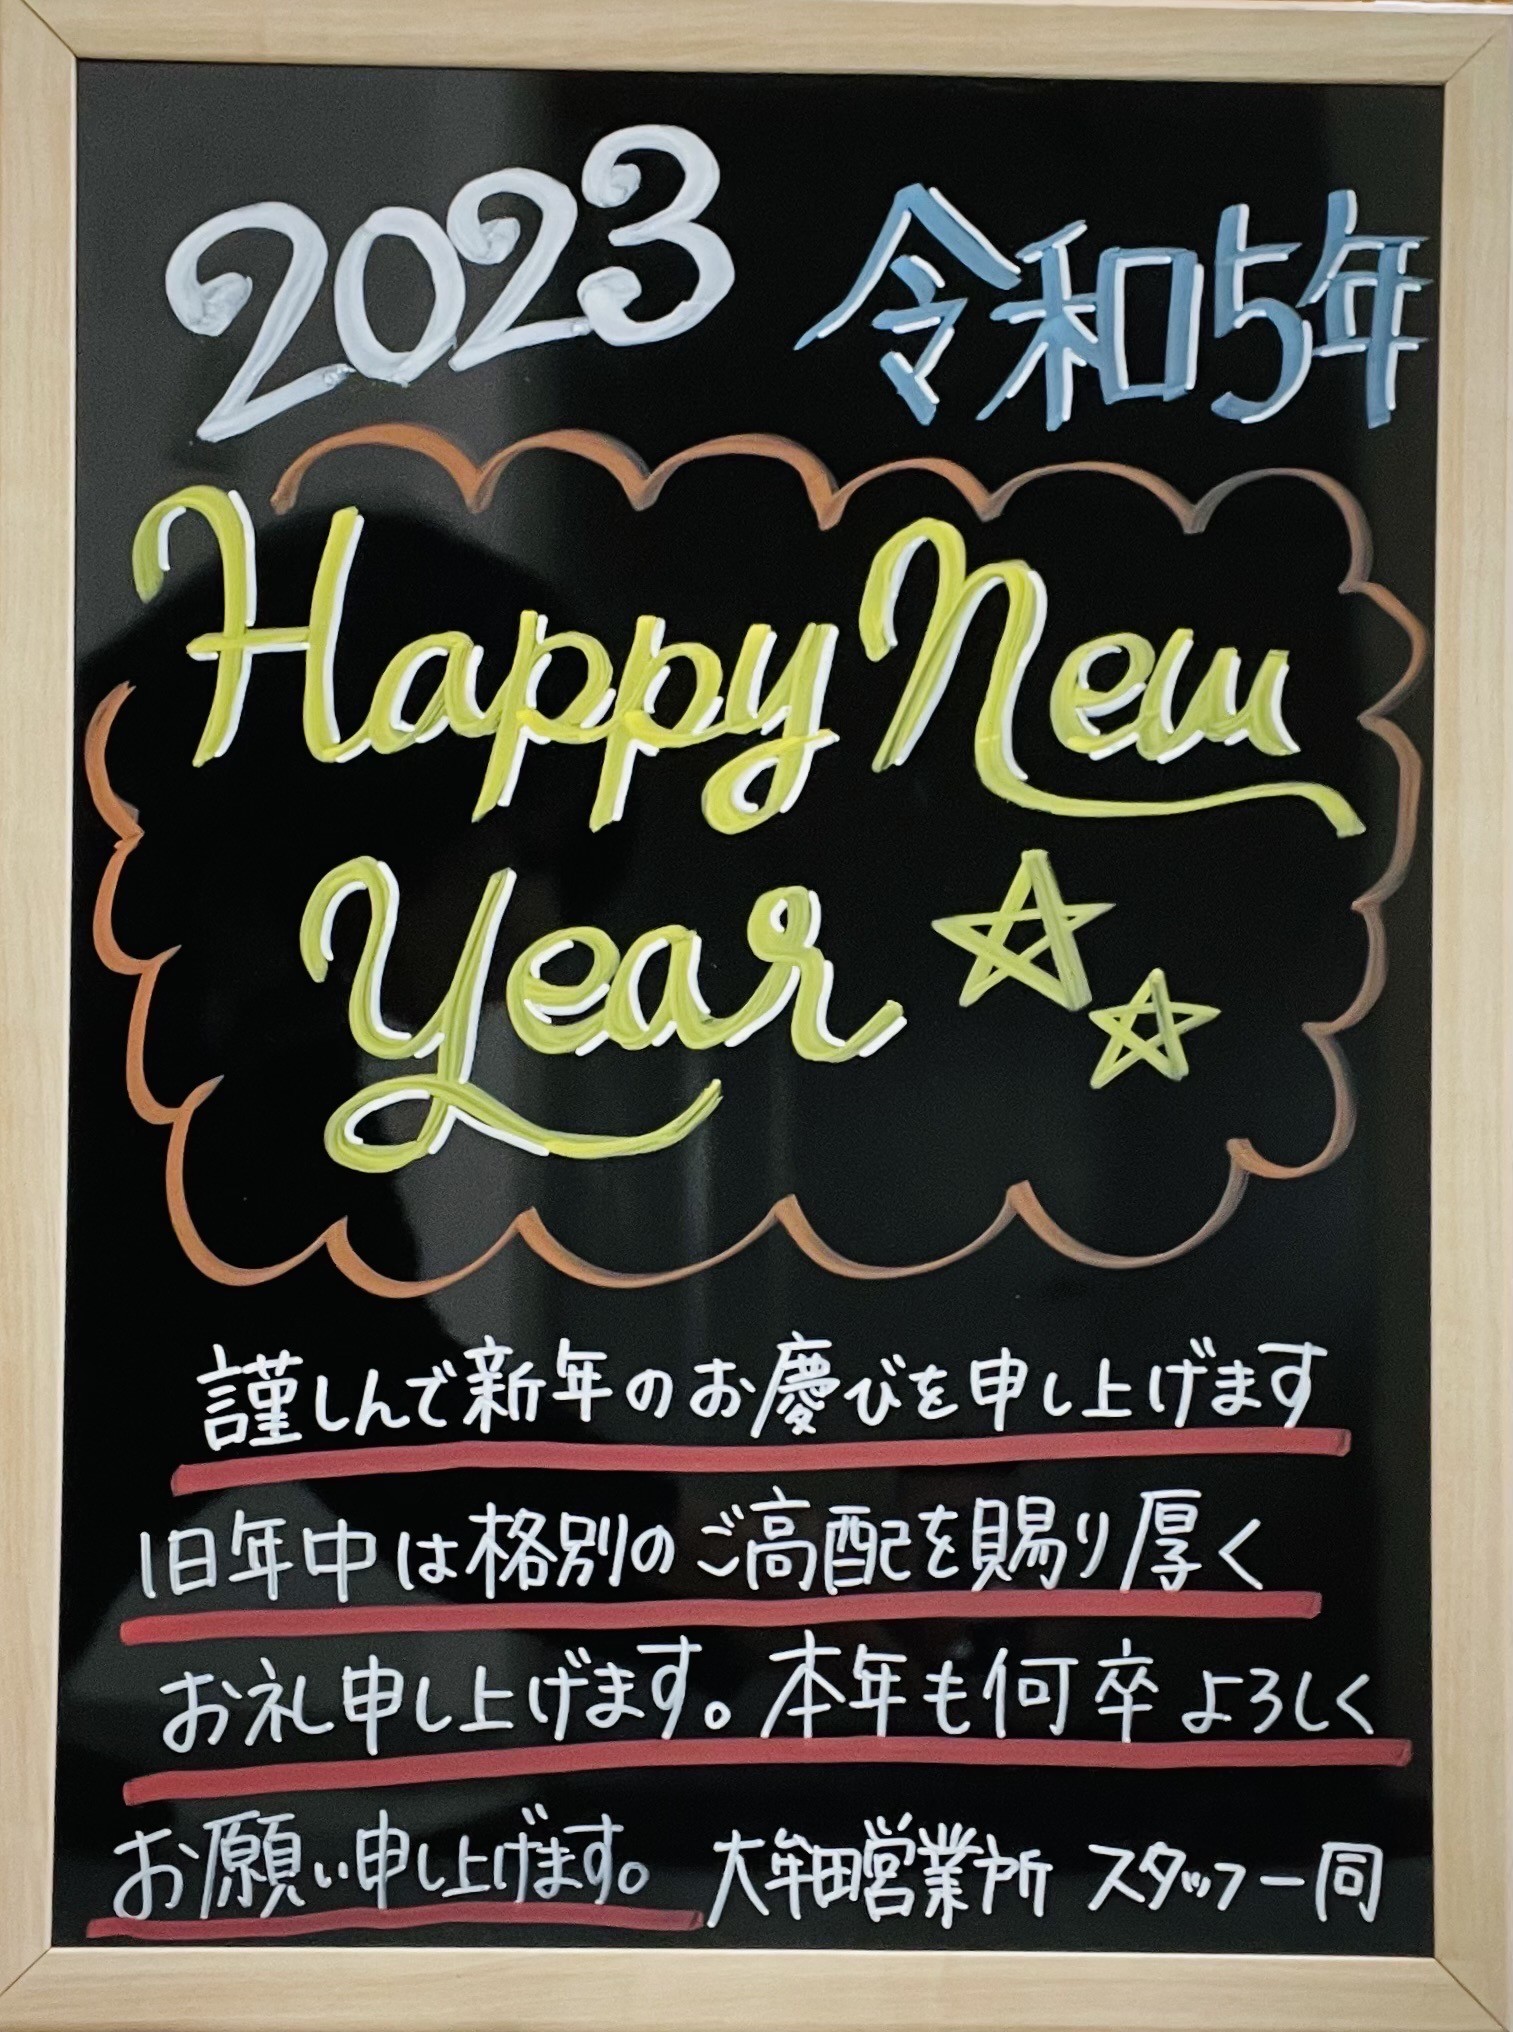 2023 令和5年
Happy New
Year
謹しんで新年のお慶びを申し上げます
旧年中は格別のご高配を賜り厚く
お礼申し上げます。本年も何卒よろしく
お願い申し上げます。 大牟田営業所 スタッフ一同